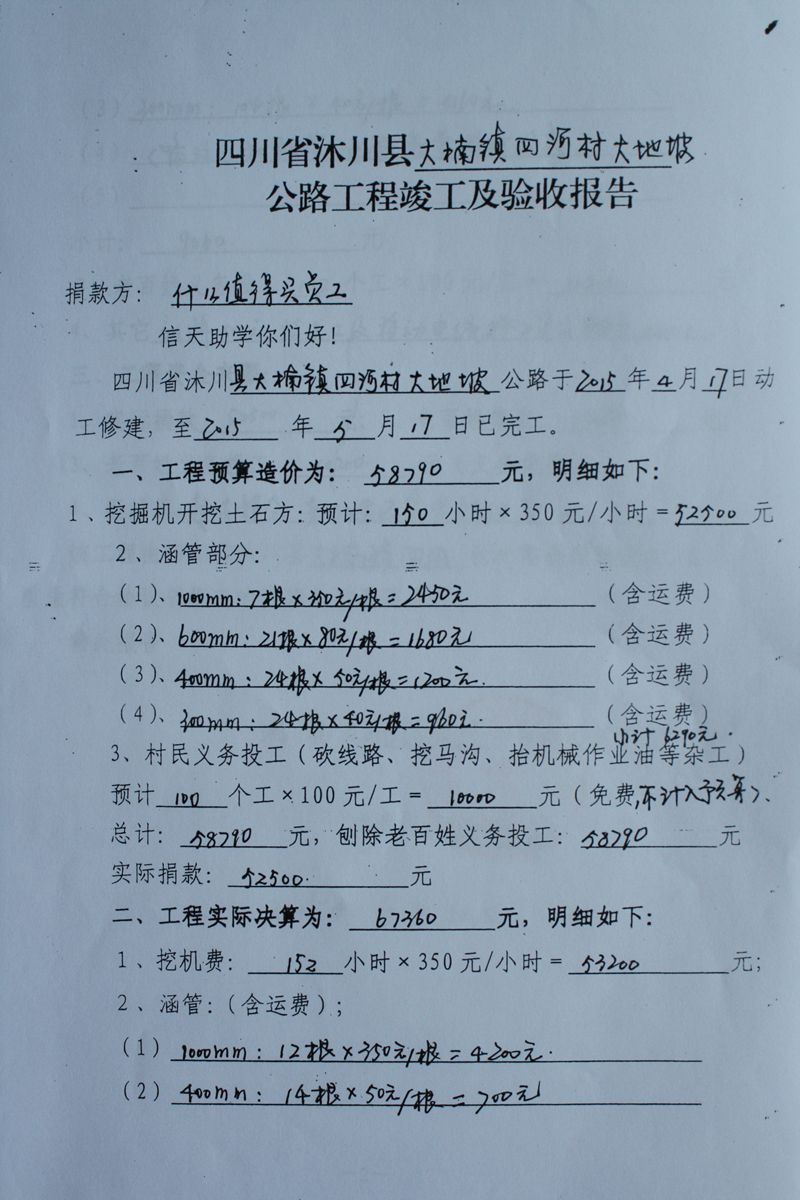 四川省沐川县大楠镇四河村大地坡
公路工程竣工及验收报告
捐款方：什么值得买员工
信天助学你们好！
四川省沐川县大楠镇四河村大地坡公路于2015年4月17日动
工修建，至2015年5月17日已完工。
一、工程预算造价为：58790元，明细如下：
1、挖掘机开挖土石方：预计：150小时×350元/小时=52500元
2、涵管部分：
（1）、1000mm：7根×350元/根=2450元（含运费）
（2）、600mm：21根×80元/根=1680元（含运费）
（3）、400mm：24根×50元/根=1200元.（含运费）
（4）、300mm：24根×40元/根=960元.（含运费）
小计6290元.
3、村民义务投工（砍线路、挖马沟、抬机械作业油等杂工）
预计100个工×100元/工=10000元（免费,不计入予算）、
总计：58790元，刨除老百姓义务投工：58790元
实际捐款：52500.元
二、工程实际决算为：67360元，明细如下：
1、挖机费：152小时×350元/小时=53200元；
2、涵管：（含运费）；
（1）1000mm：12根×350元/根=4200元.
（2）400mm：14根×50元/根=700元